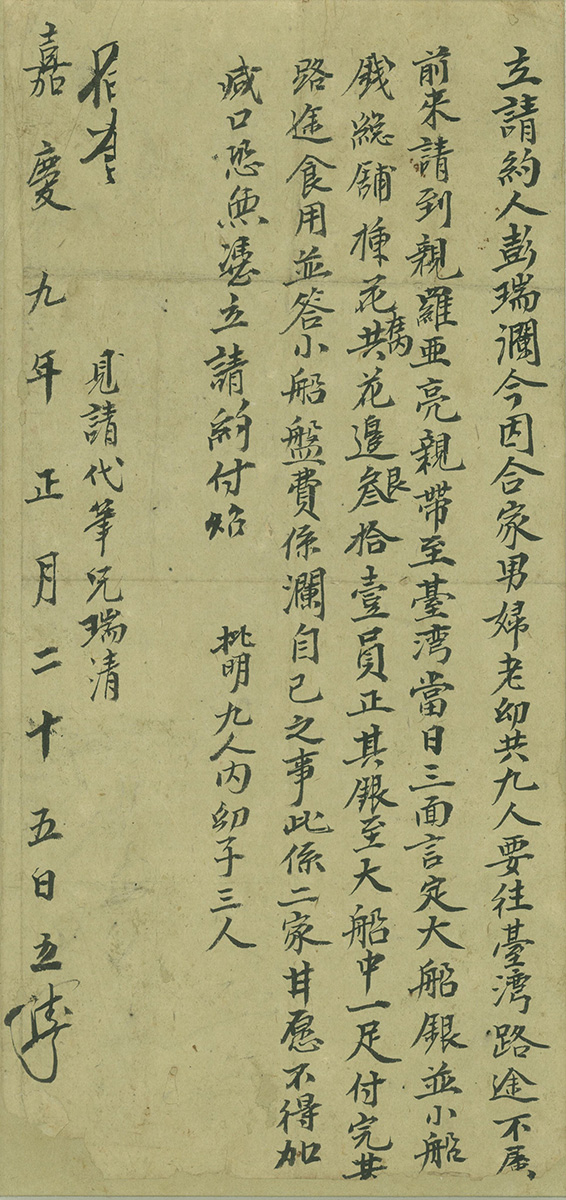 立請約人彭瑞瀾今因合家男婦老幼共九人要往臺灣路途不
前來請到親羅亞亮親帶至臺灣當日三面言定大船銀並小船
錢總舖插花共花邊銀叁拾壹員正其銀至大船中一足付完其
路途食用並答小船盤費係瀾自己之事此係二家甘愿不得加
減口恐無憑立請約付炤
批明九人內幼子三人
見請代筆兄瑞清
嘉慶九年正月二十五日立